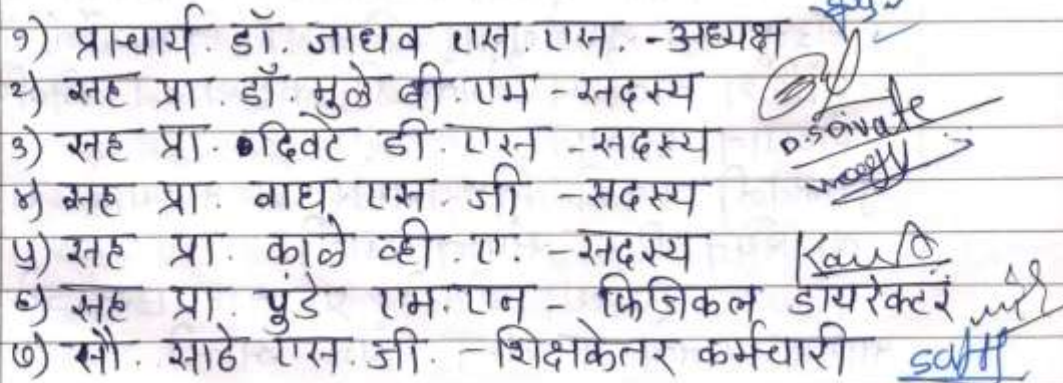 १) प्राचार्य. डॉ. जाधव एस. एस. - अध्यक्ष
२) सह प्रा. डॉ. मुळे बी. एम - सदस्य
३) सह प्रा. दिवटे डी. एस - सदस्य
४) सह प्रा. वाघ एस. जी - सदस्य
५) सह प्रा. काळे व्ही. ए. - सदस्य
६) सह प्रा. पुंडे एम. एन - फिजिकल डायरेक्टर
७) सौ. साठे एस. जी. - शिक्षकेतर कर्मचारी